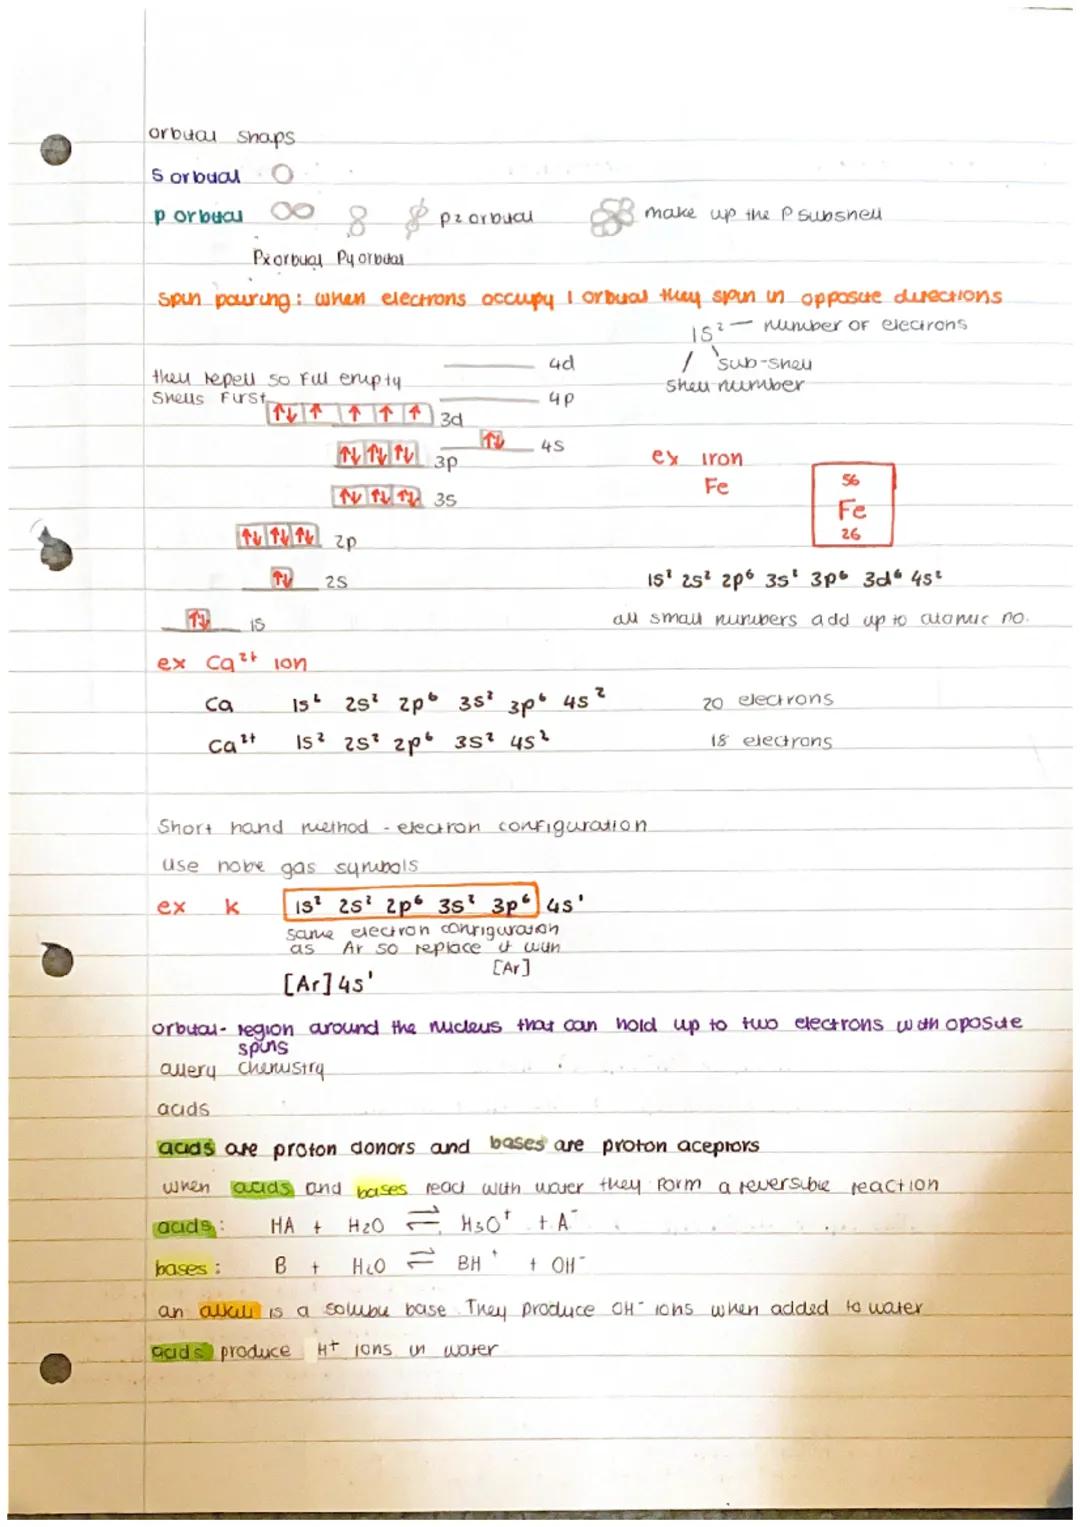 orbital shaps
S orbital
p orbital pz orbital make up the P subshell
Px orbital Py orbital
Spin pairing: when electrons occupy 1 orbital they spin in opposite directions
1S² — number of electrons
sub-shell
shell number
4d
they repell so fill empty
shells first
4p
↑↓ ↑ ↑ ↑ ↑ 3d
↑↓ 4s
↑↓ ↑↓ ↑↓ 3p
ex iron
Fe
56
Fe
26
↑↓ ↑↓ ↑↓ 3s
↑↓ ↑↓ ↑↓ 2p
↑↓ 2s
1s² 2s² 2p⁶ 3s² 3p⁶ 3d⁶ 4s²
↑↓ 1s
all small numbers add up to atomic no.
ex Ca²⁺ ion
Ca 1s² 2s² 2p⁶ 3s² 3p⁶ 4s² 20 electrons
Ca²⁺ 1s² 2s² 2p⁶ 3s² 4s² 18 electrons
Short hand method - electron configuration
use noble gas symbols
ex K 1s² 2s² 2p⁶ 3s² 3p⁶ 4s¹
same electron configuration
as Ar so replace it with
[Ar]
[Ar] 4s¹
orbital- region around the nucleus that can hold up to two electrons with oposite
spins
allery chemistry
acids
acids are proton donors and bases are proton aceptors
when acids and bases react with water they form a reversible reaction
acids: HA + H2O ⇌ H3O⁺ + A⁻
bases: B + H2O ⇌ BH⁺ + OH⁻
an alkali is a soluble base They produce OH⁻ ions when added to water
acids produce H⁺ ions in water